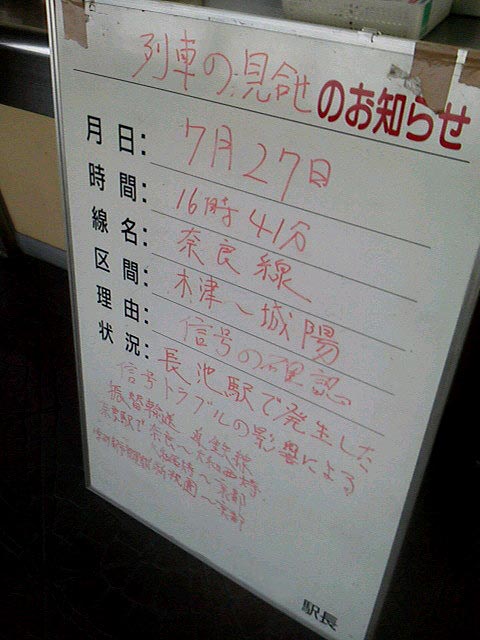 列車の見合せのお知らせ
月日: 7月27日
時間: 16時41分
線名: 奈良線
区間: 木津〜城陽
理由: 信号の確認
状況: 長池駅で発生した
信号トラブルの影響による
振替輸送 近鉄線
奈良〜大和西大寺
〜京都
新祝園〜京都
駅長